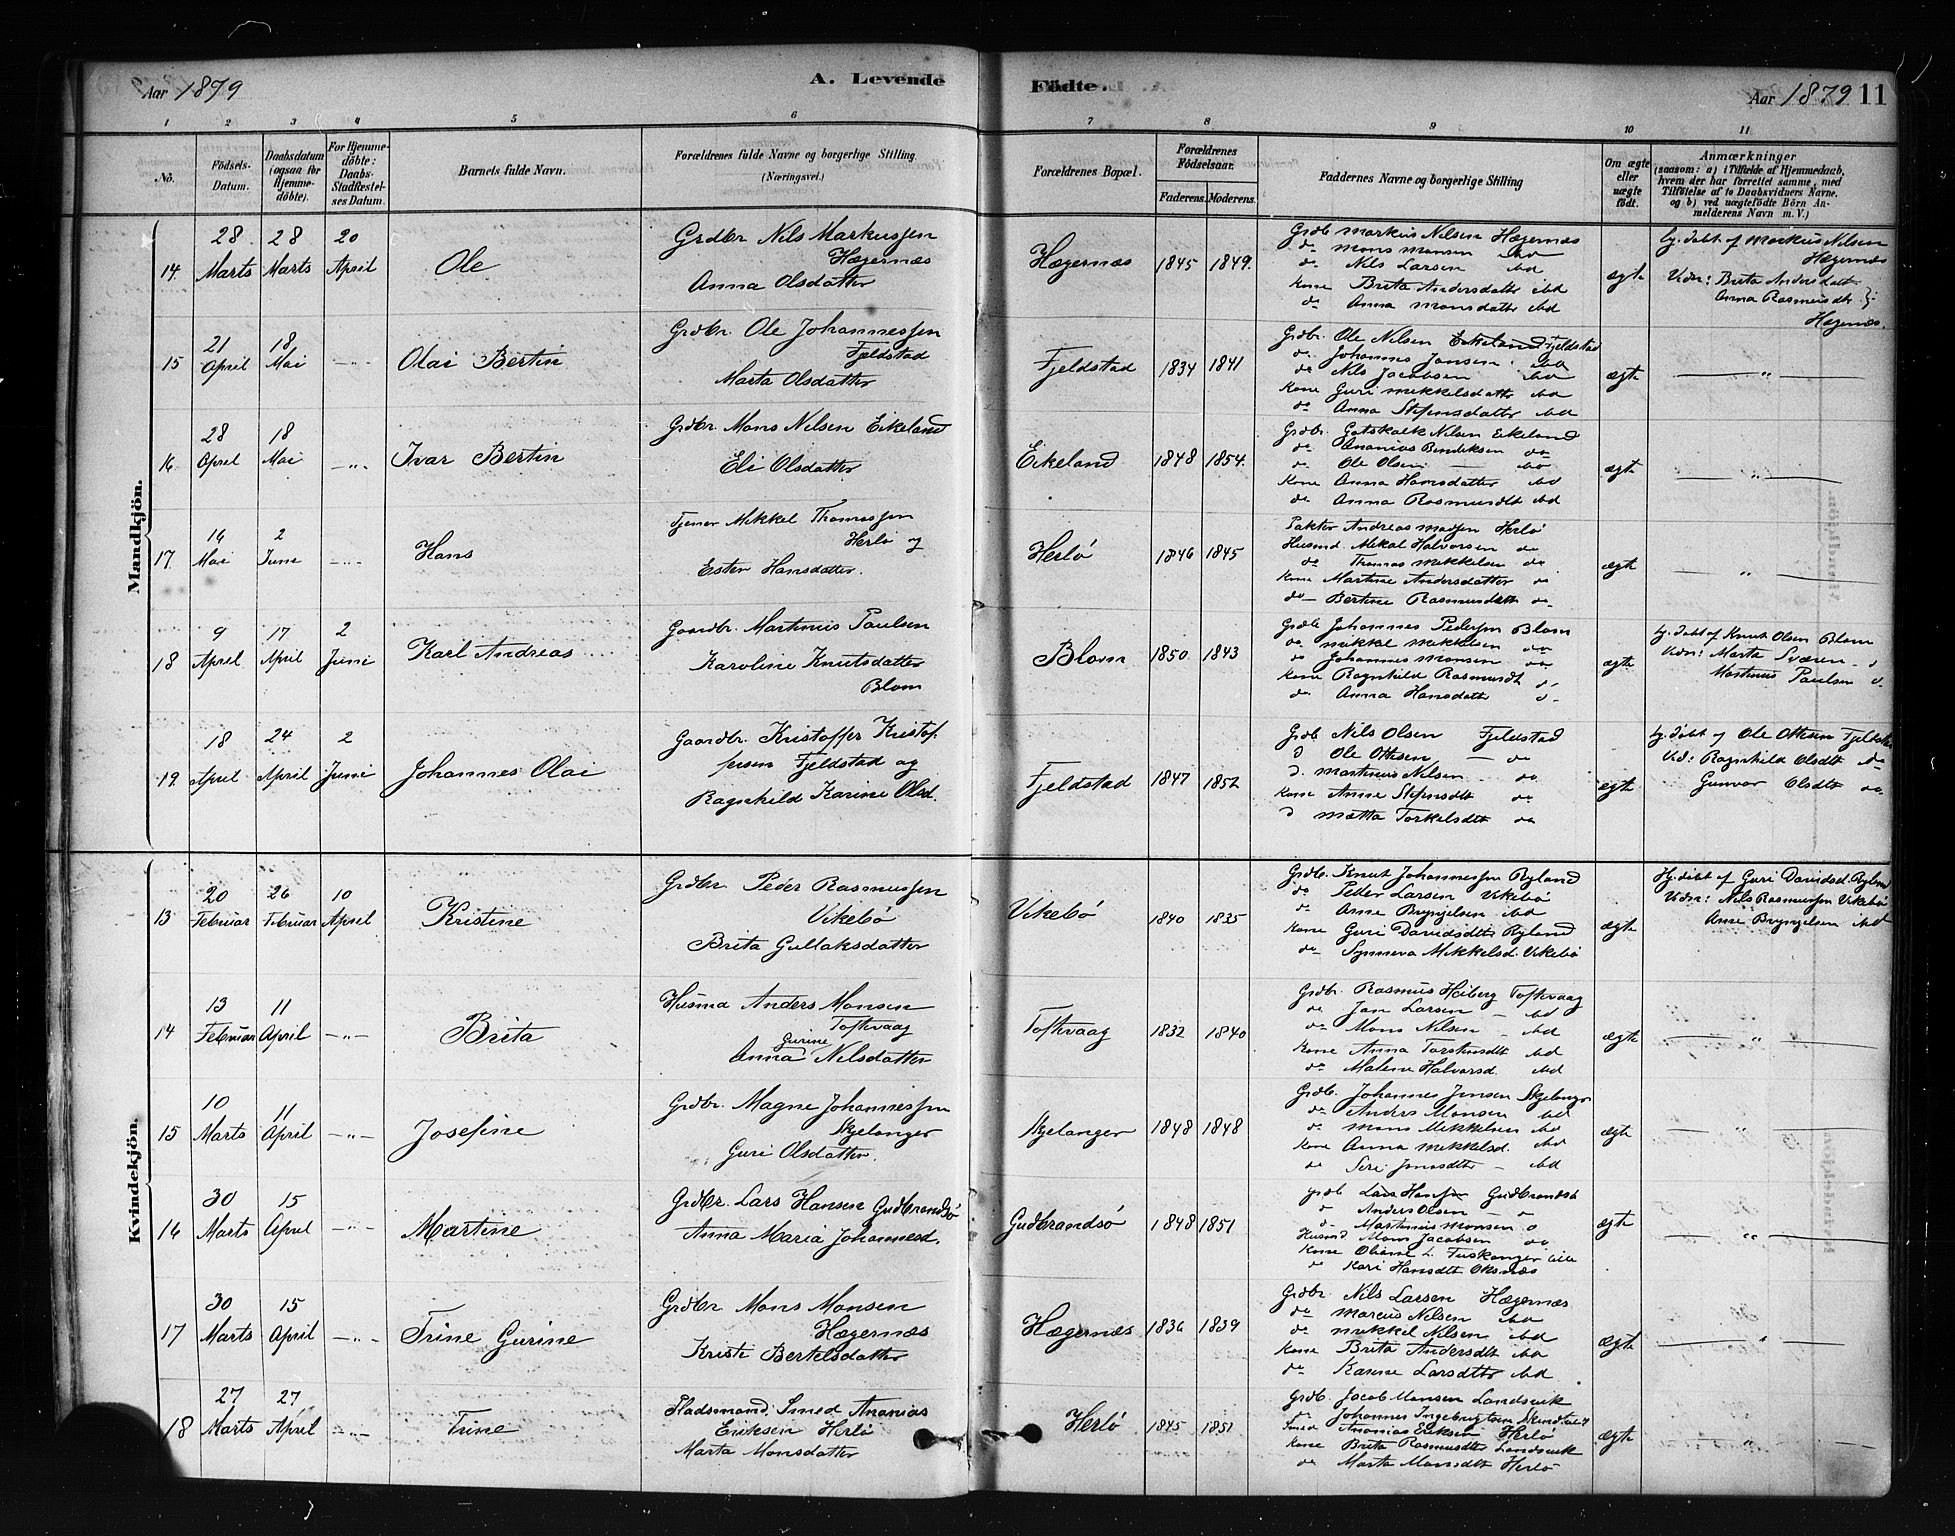 Aar 1879
A. Levende
Födte.
Aar 1879
11
1 2 3 4 5 6 7 8 9 10 11
No.
Födsels-Datum.
Daabsdatum (ogsaa for Hjemme-døbte).
For Hjemme-døbte: Daabs-Stadfæstel-ses Datum.
Barnets fulde Navn.
Forældrenes fulde Navne og borgerlige Stilling (Næringsvei.)
Forældrenes Bopæl.
Forældrenes Födselsaar.
Faderens. Moderens.
Faddernes Navne og borgerlige Stilling
Om ægte eller uægte födt.
Anmærkninger
(saasom: a) i Tilfælde af Hjemmedaab,
hvem der har forrettet samme, med
Tilföielse af to Daabsvidners Navne.
og b) ved uægtefödte Börn An-
melderens Navn m. V.)
Mandkjön.
14. 28 Marts 28 Marts 20 April Ole
Grdbr Nils Markussen
Hægernæs
Anna Olsdatter
Hægernæs 1845 1849.
Grdb Markus Nilsen Hægernæs
do Mons Monsen ibd
do Nils Larsen ibd
Kone Brita Andersdatter ibd
do Anna Monsdatter ibd
ægte
hj. døbt af Markus Nilsen
Hægernæs
Vidn: Brita Andersdatt
Anna Rasmusdt
Hægernæs.
15 21 April 18 Mai -"- Olai Bertin
Grdbr. Ole Johannessen
Fjeldstad
Marta Olsdatter
Fjeldstad 1834 1841
Grdbr. Ole Nilsen Eikeland Fjeldstad
do. Johannes Jansen ibd
do Nils Jacobsen ibd
Kone Guri Mikkelsdatter ibd
do Anna Stefensdatter ibd
ægte
— " —
16 28 April 18 Mai -"- Ivar Bertin
Grdbr Mons Nilsen Eikeland
Eli Olsdatter
Eikeland 1848 1854.
Grdbr. Gotskalk Nilsen Eikeland
do. Ananias Bendiksen do
do Ole Olsen — ibd
Kone Anna Hansdatter ibd
do Anna Rasmusdt ibd
ægte
— " —
17. 16 Mai 2 Juni -"- Hans
Tjener Mikkel Thomassen
Herlø og
Ester Hansdatter.
Herlø 1846 1845
Pakter Andreas Madsen Herlø
Husmd. Mikal Halvorsen do
do Thomas Mikkelsen do
Kone Martine Andersdatter do
do — Bertine Rasmusdatt do
ægte
— " —
18 9 April 17 April 2 Juni Karl Andreas
Gaardbr. Martinus Paulsen
Karoline Knutsdatter
Blom
Blom 1850 1843
Grdb Johannes Pedersen Blom
do Mikkel Mikkelsen do
do Johannes Monsen do
Kone Ragnhild Rasmusdt d-
do Anna Hansdatter d-
ægte
hj. døbt af Knut Olsen Blom
Vidn: Marta d
Martinus Paulsen d-
19. 18 April 24 April 2 Juni Johannes Olai
Gaardbr. Kristoffer Kristof-
fersen Fjeldstad og
Ragnhild Karine Olsd.
Fjeldstad 1847 1852
Grdb Nils Olsen Fjeldstad
d Ole Ottesen — do
d. Martinus Nilsen — do
Kone Anne Stefensdt do
d Mætta Torkelsdt do
ægte
hj. døbt af Ole Ottesen Fjeldstad
Vid: Ragnhild Olsdt do
Gunvor Olsdt do
Kvindekjön.
13 20 Februar 26 Februar 10 April Kristine
Grdbr Peder Rasmussen
Vikebø
Brita Gullaksdatter
Vikebø 1840 1835
Grdb. Knut Johannessen Ryland
do Peder Larsen Vikebø
do Arne Brynjelsen ibd
Kone Guri Davidsdtr Ryland
do Synneva Mikkelsd. Vikebø
ægte
Hj. døbt af Guri Davidsd. Ryland
Vidn: Nils Rasmussen Vikebø
Arne Brynjelsen ibd
14 13 Februar 11 April -"- Brita
Husmd Anders Monsen
Toftevaag
Gurine
Anna Nilsdatter
Toftevaag 1832 1840
Grdbr. Rasmus Høiberg Toftevaag
do Jan Larsen — ibd
do Mons Nilsen — ibd
Kone Anna Torstensdt ibd
do Malene Halvorsd. ibd
ægte
— " —
15 10 Marts 11 April -"- Josefine
Grdbr. Magne Johannessen
Skjelanger
Guri Olsdatter.
Skjelanger 1848 1848
Grdb. Johannes Jensen Skjelanger
do Anders Monsen ibd
do Mons Mikkelsen ibd
Kone Anna Mikkelsd. ibd
do Siri Jonasdtr — ibd
ægte
— " —
16 30 Marts 15 April -"- Martine
Grdbr. Lars Hansen Gudbrandsø
Anna Maria Johannesd.
Gudbrandsø 1848 1851
Grdb Lars Hansen Gudbrandsø
d Anders Olsen — d
d. Martinus Monsen d
Husmd Mons Jacobsen do
Kone Oliane L. Tuskanger
do Kari Hansdtr
ægte
— " —
17 30 Marts 15 April -"- Trine Gurine
Grdbr Mons Monsen
Hægernæs
Kristi Bertelsdatter
Hægernæs 1836 1839
Grdbr. Nils Larsen Hægernæs
do Marcus Nilsen ibd
do Mikkel Nilsen ibd
Kone Brita Andersdt ibd
do Karine Larsdtr ibd
ægte
— " —
18 27 Marts 27 April -"- Trine
Pladsmand, Smed Ananias
Eriksen Herlø
Marta Monsdatter
Herlø 1845 1851
Grdb. Jacob Monsen Landsvik
do Johannes Ingebrigtsen
Smed Ananias Eriksen Herlø
Kone Brita Rasmusdtr Landsvik
do Marta Monsdtr Herlø
ægte
— " —